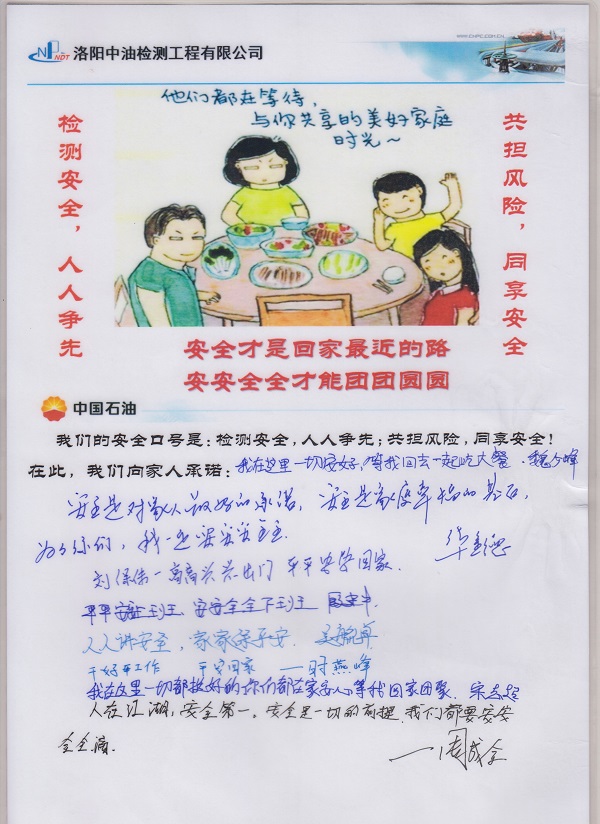 WWW.CNPC.COM.CN
NDT 洛阳中油检测工程有限公司
他们都在等待,
与你共享的美好家庭
时光~
检测安全，人人争先
共担风险，同享安全
安全才是回家最近的路
安安全全才能团团圆圆
中国石油
我们的安全口号是：检测安全，人人争先；共担风险，同享安全！
在此，我们向家人承诺：我在这里一切安好,等我回去一起吃大餐.
安全是对家人最好的承诺, 安全是家庭幸福的基石,
为了你们, 我一定安安全全
高高兴兴出门 平平安安回家.
平平安安上班 安安全全下班
人人讲安全, 家家保平安
干好工作 平安回家 —时燕峰
我在这里一切都挺好的,你们都在家安心等我回家团聚. 宋志超
人在江湖,安全第一。安全是一切的前提.我们都要安安
全全滴.
—周成全